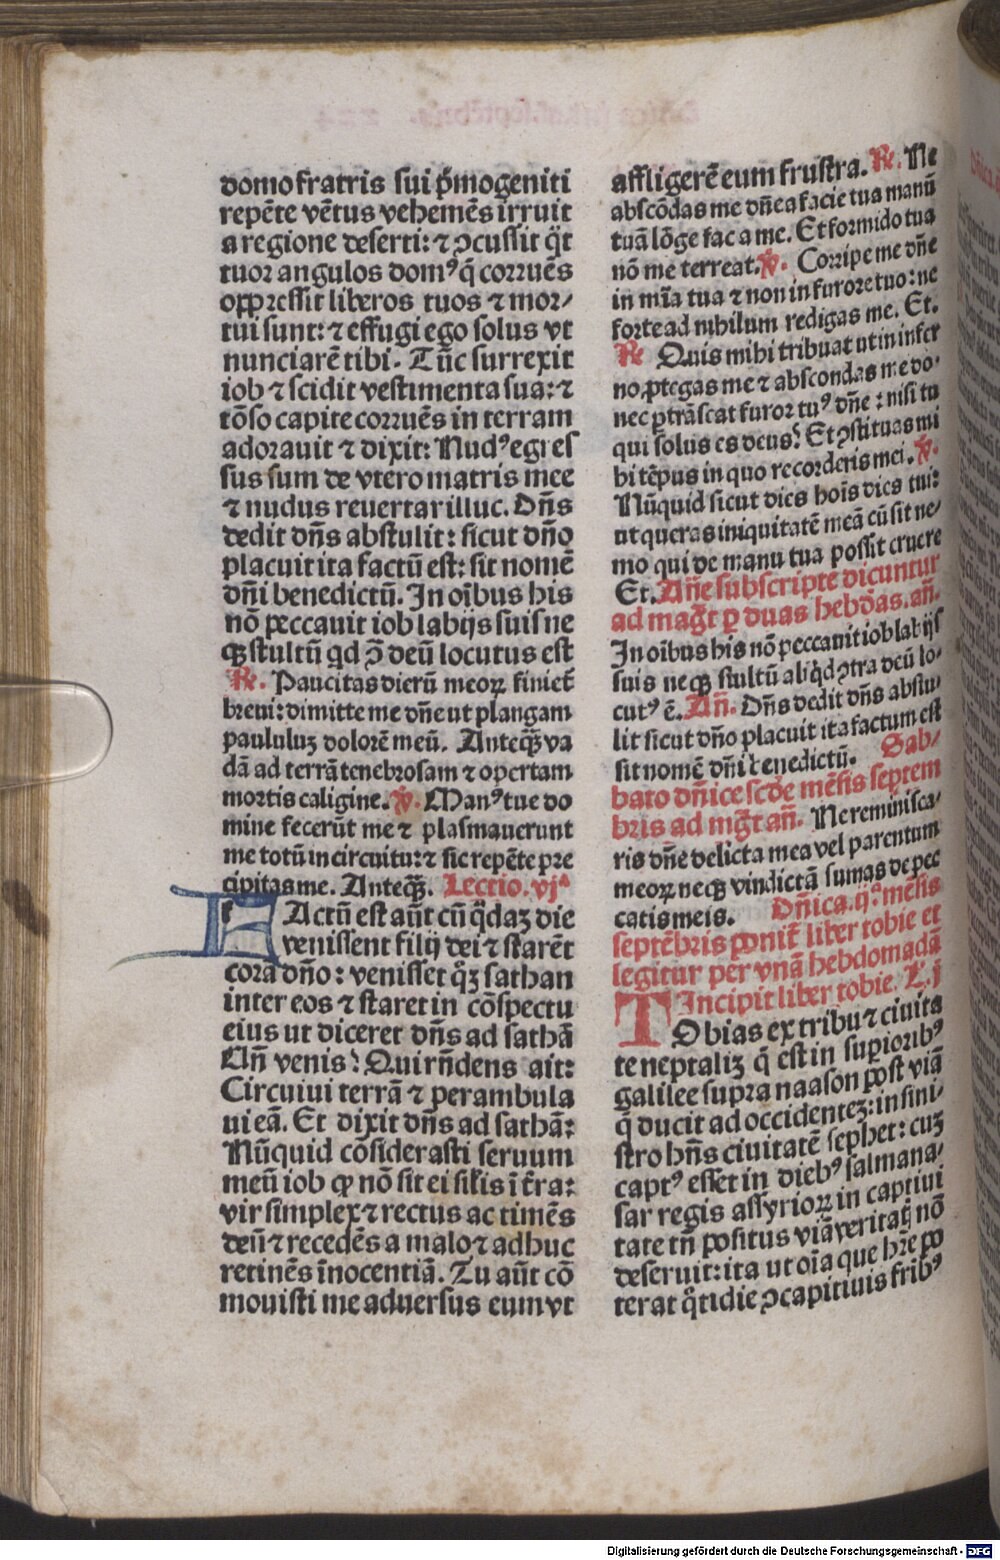 domo fratris sui p̄mogeniti
repēte vētus vehemēs irruit
a regione deserti: ⁊ ꝯcussit q̄t
tuor angulos domꝰ q̄ corruēs
oppressit liberos tuos ⁊ mor/
tui sunt: ⁊ effugi ego solus vt
nunciarē tibi. Tūc surrexit
iob ⁊ scidit vestimenta sua: ⁊
tōso capite corruēs in terram
adorauit ⁊ dixit: Nudꝰ egres
sus sum de vtero matris mee
⁊ nudus reuertar illuc. Dn̄s
dedit dn̄s abstulit: sicut dn̄o
placuit ita factū est: sit nomē
dn̄i benedictū. In oībus his
nō peccauit iob labijs suis ne
qꝫ stultū qd ꝯ̄ deū locutus est
℞. Paucitas dierū meoꝝ finiet᷑
breui: dimitte me dn̄e ut plangam
paululuꝫ dolorē meū. Anteqꝫ̄ va
dā ad terrā tenebrosam ⁊ opertam
mortis caligine. ℣. Manꝰ tue do
mine fecerūt me ⁊ plasmauerunt
me totū in circuitu: ⁊ sic repēte pre
cipitas me. Anteqꝫ̄. Lectio. vjᵃ
FActū est aūt cū q̄daꝫ die
venissent filij dei ⁊ starēt
corā dn̄o: venisset q̄ꝫ sathan
inter eos ⁊ staret in cōspectu
eius ut diceret dn̄s ad sathā
Un̄ venis? Qui rn̄dens ait:
Circuiui terrā ⁊ perambula
ui eā. Et dixit dn̄s ad sathā:
Nūquid cōsiderasti seruum
meū iob ꝙ nō sit ei sil̄is ī t̄ra:
vir simplex ⁊ rectus ac timēs
deū ⁊ recedēs a malo ⁊ adhuc
retinēs īnocentiā. Tu aūt cō
mouisti me aduersus eum vt
affligerē eum frustra. ℞. Ne
abscōdas me dn̄e a facie tua manū
tuā lōge fac a me. Et formido tua
nō me terreat. ℣. Corripe me dn̄e
in mīa tua ⁊ non in furore tuo: ne
forte ad nihilum redigas me. Et.
℞ Quis mihi tribuat ut in infer
no ꝓtegas me ⁊ abscondas me do
nec ꝑtrāseat furor tuꝰ dn̄e: nisi tu
qui solus es deus? Et ꝯstituas mi
hi tēpus in quo recorderis mei. ℣.
Nūquid sicut dies hoīs dies tui:
ut queras iniquitatē meā cū sit ne/
mo qui de manu tua possit eruere
Et. Añe subscripte dicuntur
ad mag̃t ꝑ duas hebdas. an̄.
In oībus his nō peccauit iob labijs
suis neqꝫ stultū aliq̄d ꝯtra deū lo/
cutꝰ ē. An̄. Dn̄s dedit dn̄s abstu/
lit sicut dn̄o placuit ita factum est
sit nomē dn̄i benedictū. Sab/
bato dn̄ice scd̄e mēsis septem
bris ad mg̃t an̄. Ne reminisca/
ris dn̄e delicta mea vel parentum
meoꝝ neqꝫ vindictā sumas de pec
catis meis. Dn̄ica. ijᵃ mēsis
septēbris ponit᷑ liber tobie et
legitur per vnā hebdomadā
Incipit liber tobie. L. j
TObias ex tribu ⁊ ciuita
te neptaliꝫ q̄ est in suꝑioribꝰ
galilee supra naason post viā
q̄ ducit ad occidenteꝫ: in sini/
stro hn̄s ciuitatē sephet: cuꝫ
captꝰ esset in diebꝰ salmana/
sar regis assyrioꝝ in captiui
tate tn̄ positus viā veritatꝭ nō
deseruit: ita ut oīa que hr̄e po
terat q̄tidie ꝯcaptiuis fribꝰ
Digitalisierung gefördert durch die Deutsche Forschungsgemeinschaft - DFG